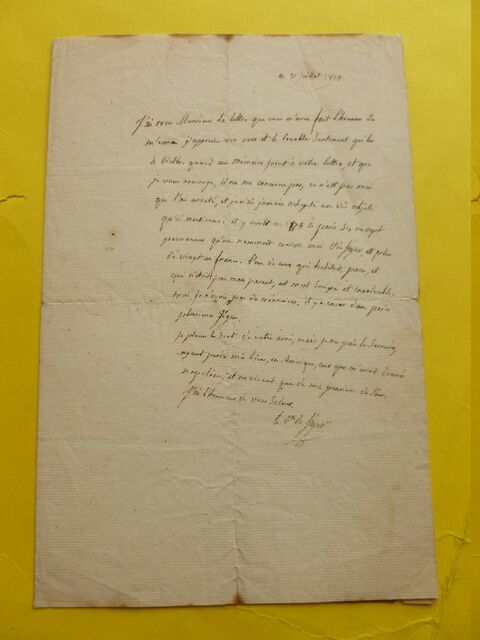 ce 31 juillet 1824
J'ai reçu Monsieur la lettre que vous m'avez fait l'honneur de
m'ecrire j'apprecie vos vers et le louable Sentiment qui les
a dictés. quand au mémoire joint à votre lettre, et que
je vous renvoye, il ne me concerne pas, ce n'est pas moi
qui l'ai arreté, et je n'ai jamais acheté un des objets
qu'il mentionne: il y avoit en à paris dix ou sept
personnes qu'on nommoit comme moi Ségur, et plus
de vingt en france. l'un de ceux qui habitoit paris, et
qui n'était pas mon parent, est mort et insolvable.
moi, je n'avois pas de créanciers, il y a encor dans paris
plusieurs Ségur.
je plains le Sort de votre ami, mais je ne puis le Secourir
ayant perdu mes biens, en Amerique, ceux que m'avoit donnés
napoléon, et ne vivant que de ma pension de Pair.
J'ai l'honneur de vous Saluer,
le Cte de Ségur